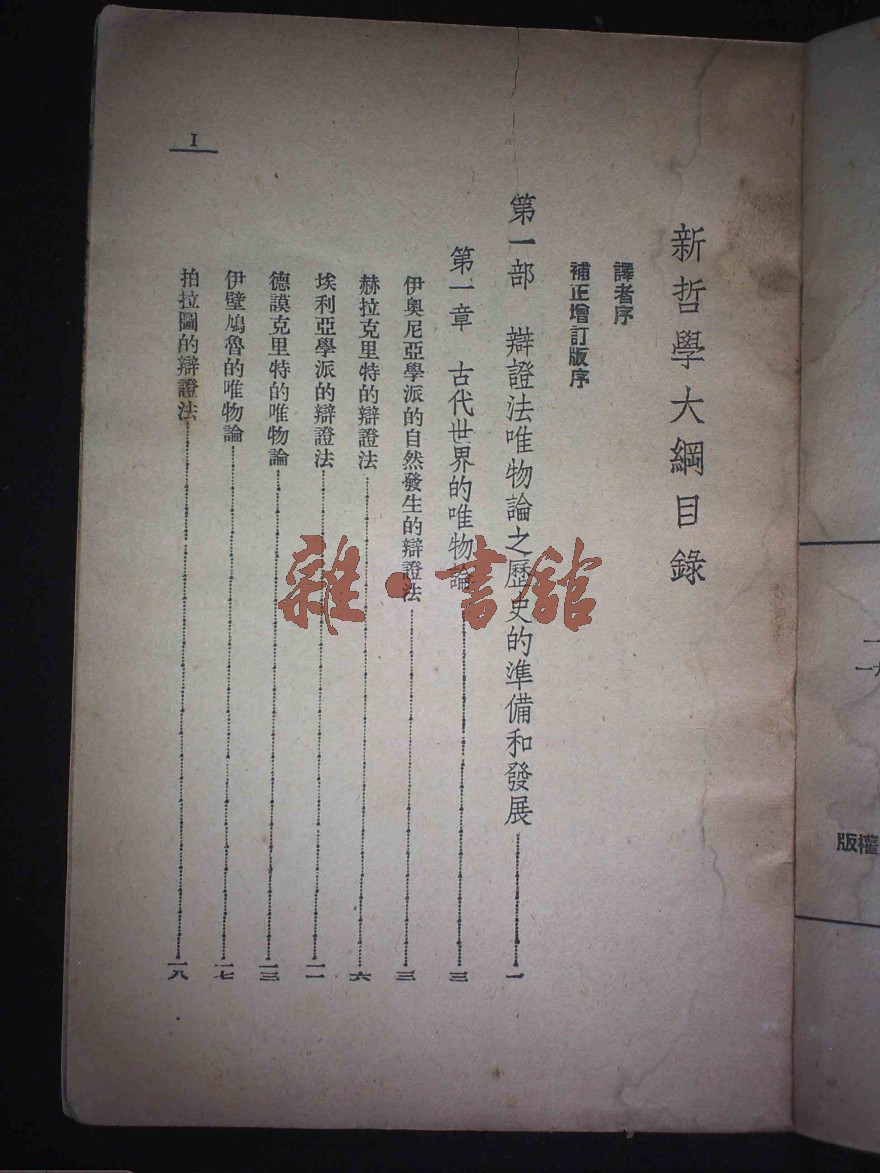 新哲學大綱目錄
譯者序
補正增訂版序
第一部 辯證法唯物論之歷史的準備和發展 一
第一章 古代世界的唯物論 三
伊奧尼亞學派的自然發生的辯證法 三
赫拉克里特的辯證法 六
埃利亞學派的辯證法 一一
德謨克里特的唯物論 一三
伊壁鳩魯的唯物論 一七
拍拉圖的辯證法 一八
I
雜·書館
版權